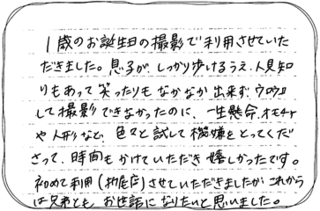 1歳のお誕生日の撮影で利用させていた
だきました。息子が、しっかり歩けるうえ、人見知
りもあって笑ったりもなかなか出来ず、ウロウロ
して撮影できなかったのに、一生懸命、オモチャ
や人形など、色々と試して機嫌をとってくだ
さって、時間もかけていただき嬉しかったです。
初めて利用(柏店)させていただきましたが、これから
は兄弟とも、お世話になりたいと思いました。